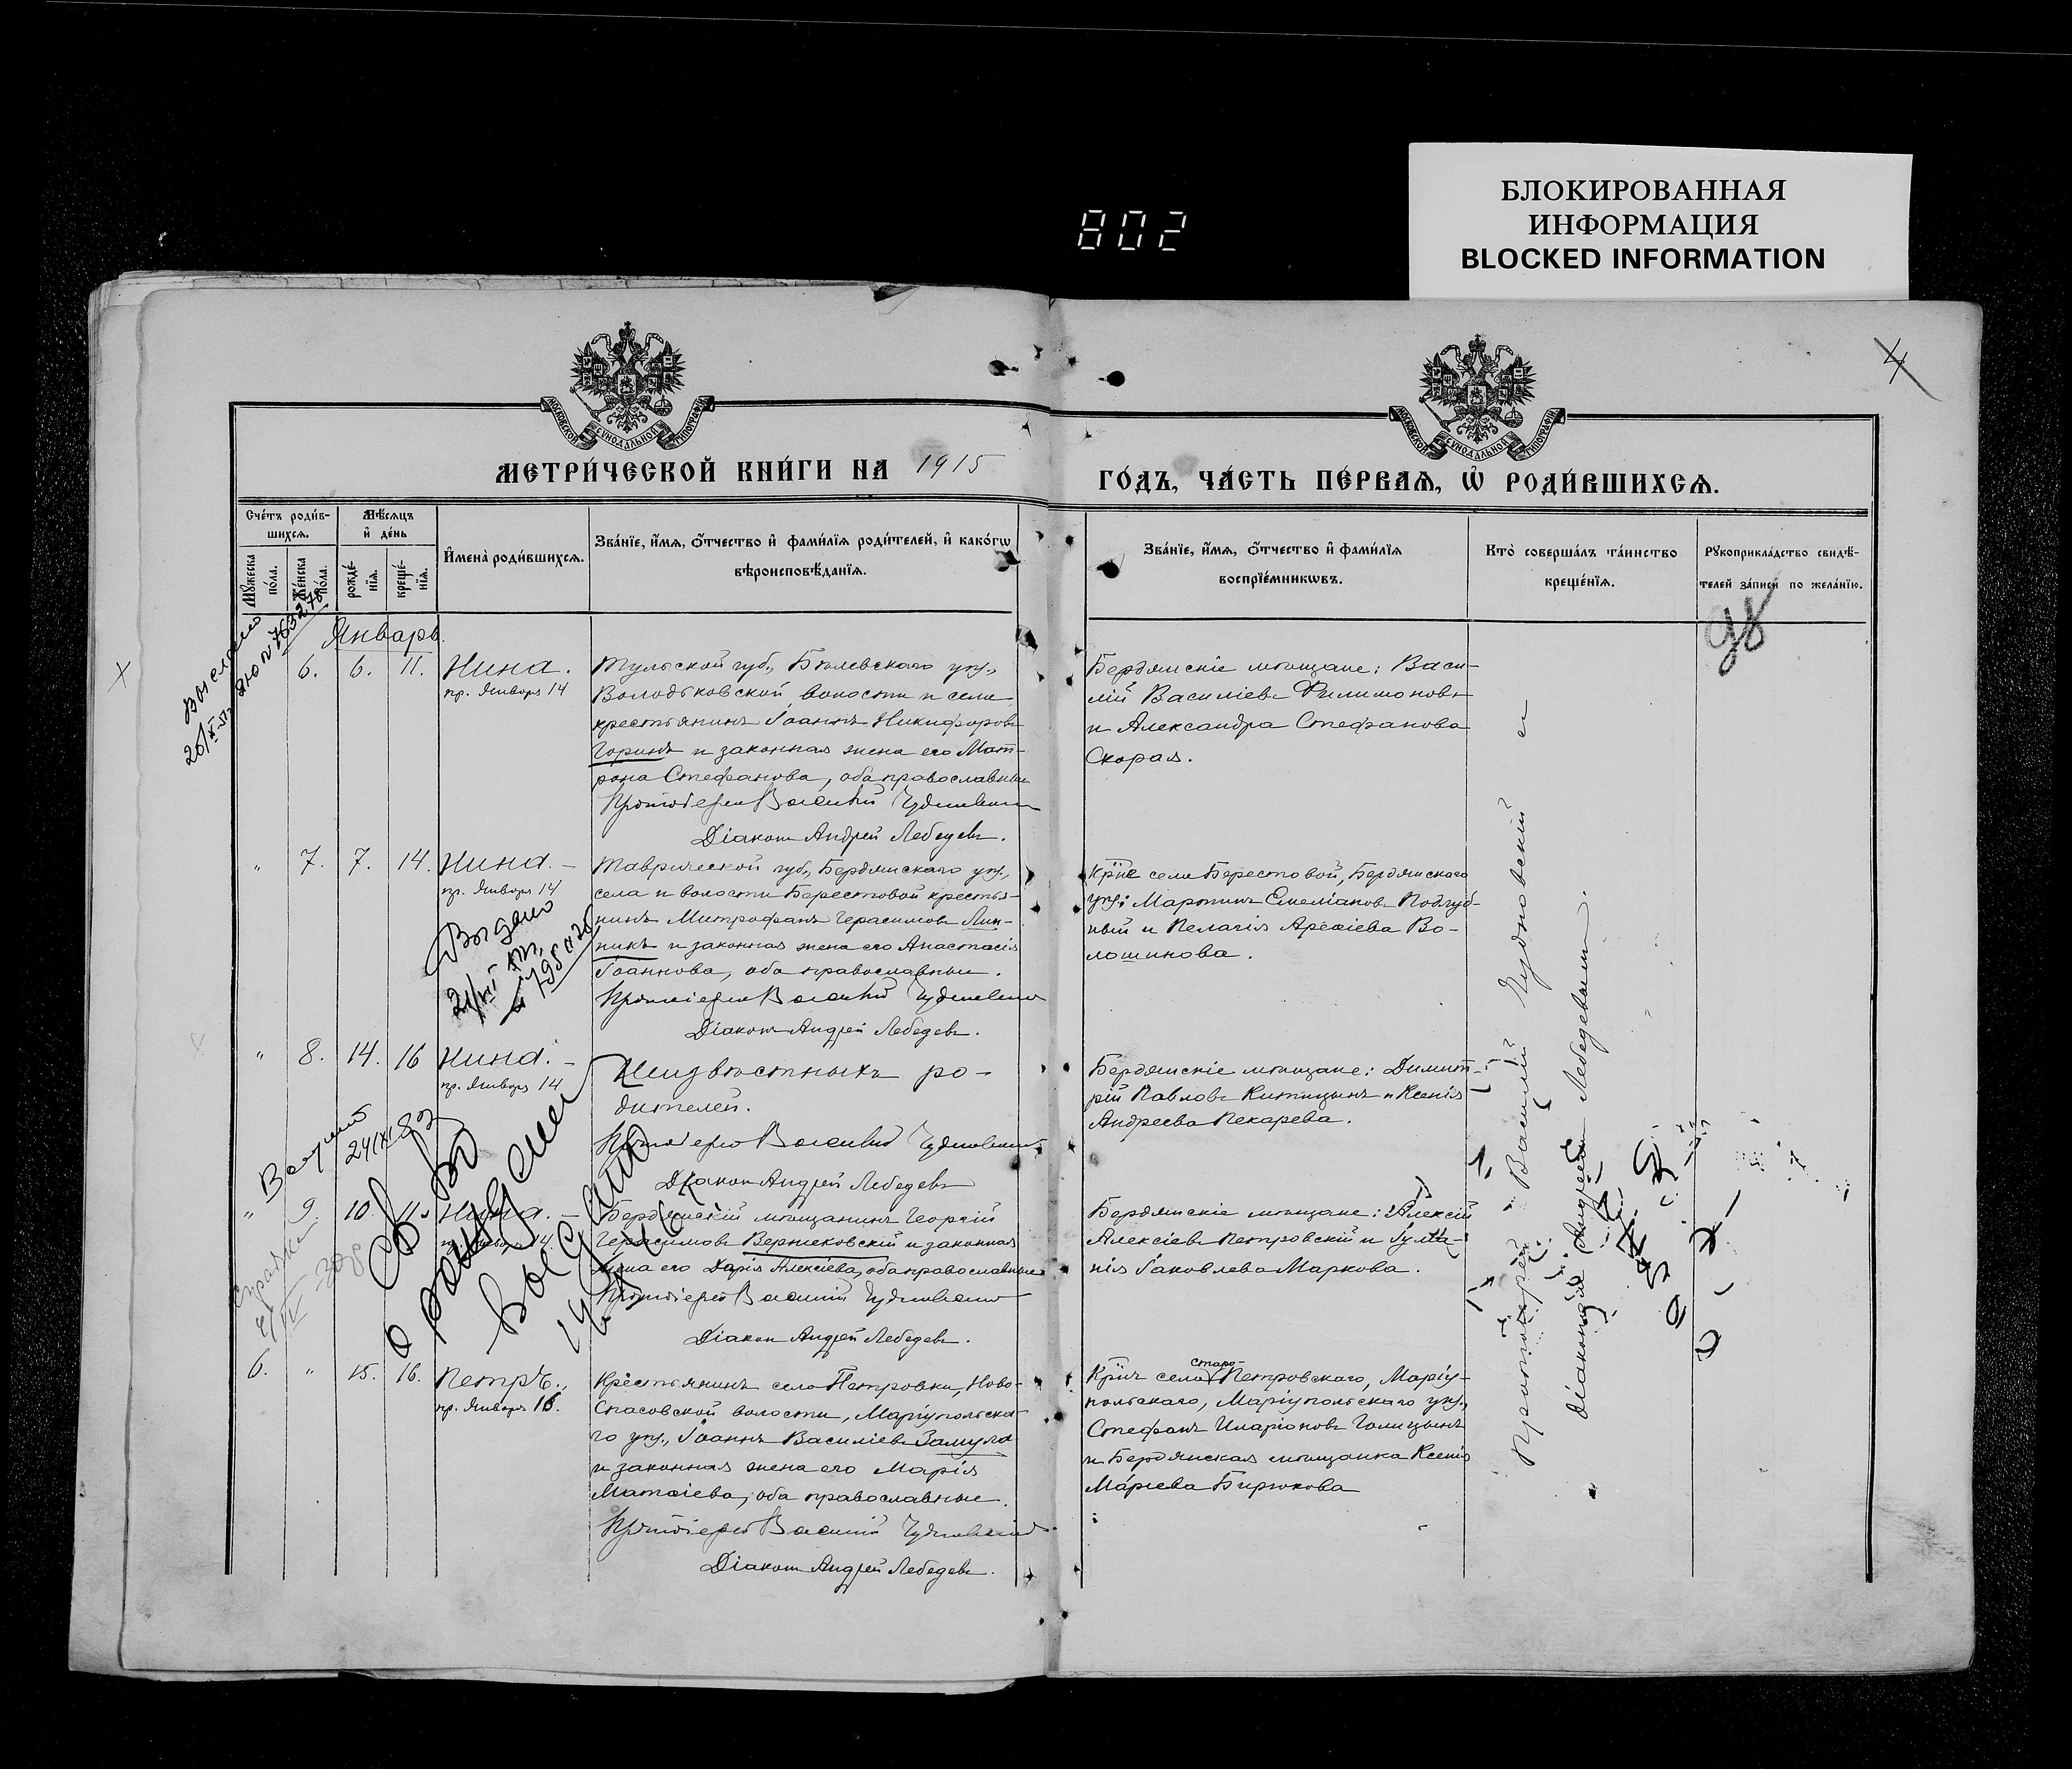 802
БЛОКИРОВАННАЯ
ИНФОРМАЦИЯ
BLOCKED INFORMATION
4
МОСКОВСКОЙ СѴНОДАЛЬНОЙ ТИПОГРАФІИ
МОСКОВСКОЙ СѴНОДАЛЬНОЙ ТИПОГРАФІИ
МЕТРИ́ЧЕСКОЙ КНИ́ГИ НА 1915
ГО́ДЪ, ЧА́СТЬ ПЕ́РВАѦ, Ѡ҆ РОДИ́ВШИХСѦ.
Сче́тъ роди́в-
шихсѧ.
Мѣ́сѧцъ
и҆ де́нь
Мꙋ́жеска
по́ла.
Же́нска
по́ла.
рожде́-
нїѧ.
креще́-
нїѧ.
И҆мена̀ роди́вшихсѧ.
Зва́нїе, и҆́мѧ, ѻ҆́тчество и҆ фами́лїѧ роди́телей, и҆ како́гѡ
вѣроисповѣ́данїѧ.
Зва́нїе, и҆́мѧ, ѻ҆́тчество и҆ фами́лїѧ
воспрїе́мникѡвъ.
Кто̀ соверша́лъ та́инство
креще́нїѧ.
Рꙋкоприкла́дство свидѣ́-
телей за́писи по жела́нїю.
98
Январь.
6. 6. 11. Нина.
пр. Января 14
Тульской губ., Бѣлевскаго уѣз.,
Володьковской волости и села
крестьянинъ Іоаннъ Никифоровъ
Горинъ и законная жена его Мат-
рона Стефанова, оба православные
Протоіерей Василій Чудновскій
Діаконъ Андрей Лебедевъ.
Бердянскіе мѣщане: Васи-
лій Василіевъ Филимоновъ
и Александра Стефанова
Скорая.
" 7. 7. 14. Нина.
пр. Января 14
Выдано
Таврической губ., Бердянскаго уѣз.,
села и волости Берестовой крестья-
нинъ Митрофанъ Герасимовъ Лин-
никъ и законная жена его Анастасія
Іоаннова, оба православные.
Протоіерей Василій Чудновскій
Діаконъ Андрей Лебедевъ.
Кр̃не села Берестовой, Бердянскаго
уѣз: Мартинъ Емеліановъ Поддуб-
ный и Пелагія Арсеніева Во-
лошинова.
" 8. 14. 16 Нина.
пр. Января 14
Неизвѣстныхъ ро-
дителей.
Протоіерей Василій Чудновскій
Діаконъ Андрей Лебедевъ
Бердянскіе мѣщане: Димит-
рій Павловъ Китицынъ и Ксенія
Андреева Пекарева.
" 9. 10. 11. Нина.
пр. Января 14.
Бердянскій мѣщанинъ Георгій
Герасимовъ Вержековскій и законная
жена его Дарія Алексіева, оба православные
Протоіерей Василій Чудновскій
Діаконъ Андрей Лебедевъ.
Бердянскіе мѣщане: Алексій
Алексіевъ Петровскій и Іулiа-
нія Іаковлева Маркова.
6. " 15. 16. Петръ.
пр. Января 16.
Крестьянинъ села Петровки, Ново-
Спасовской волости, Маріупольска-
го уѣз., Іоаннъ Василіевъ Замула
и законная жена его Марія
Матѳіева, оба православные.
Протоіерей Василій Чудновскій
Діаконъ Андрей Лебедевъ.
Кр̃нъ села Старо-Петровскаго, Маріу-
польскаго, Маріупольскаго уѣз.,
Стефанъ Иларіоновъ Голицынъ
и Бердянская мѣщанка Ксенія
Маріева Бирюкова
Протоіерей Василій Чудновскій съ
Діакономъ Андреемъ Лебедевымъ.